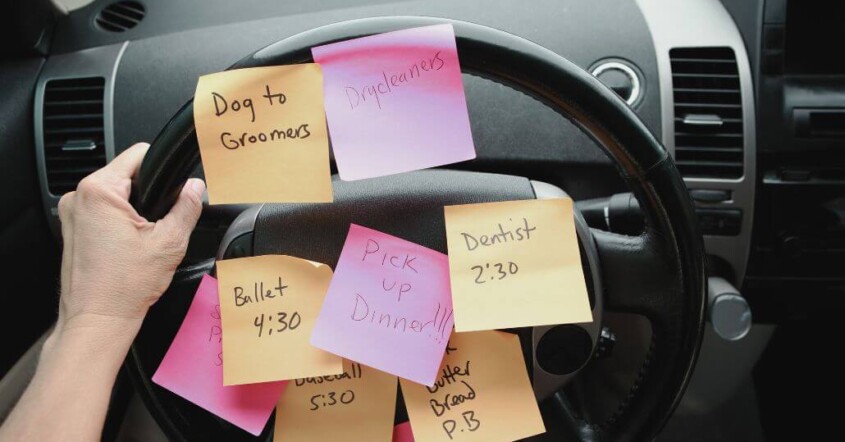 Dog to
Groomers
Drycleaners
Dentist
2:30
Pick
up
Dinner!!!
Ballet
4:30
Baseball
5:30
Butter
Bread
P.B